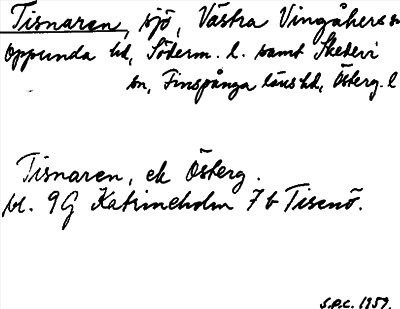 Tisnaren, sjö, Västra Vingåkers sn
Oppunda hd, Söderm. l. samt Skedevi
sn, Finspånga läns hd, Österg. l
Tisnaren, ek Österg.
bl. 9G Katrineholm 7b Tisenö.
S.P.C. 1959.